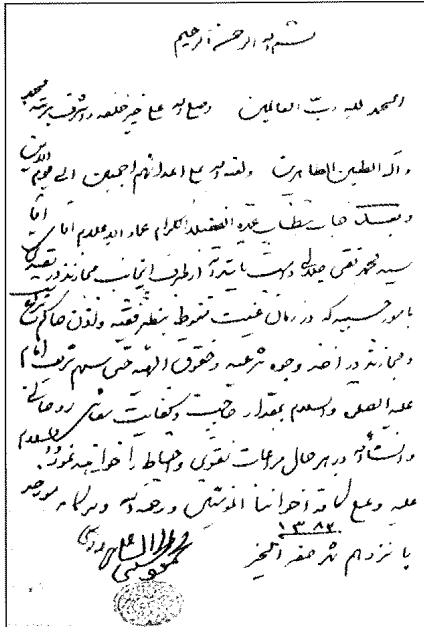 بسم الله الرحمن الرحیم
الحمد لله ربّ العالمین وصلی الله علی خیر خلقه واشرف بریته محمد
وآله الطیبین الطاهرین ولعنة الله علی اعدائهم اجمعین الی یوم الدین
وبعد جناب مستطاب عمدة الفضلاء الکرام عماد الاعلام آقای آقا
سید محمد تقی دامت تأییداته ازطرف اینجانب مجازند در تصدی
بامور حسبیه که در زمان غیبت منوط بنظر فقیه واذن حاکم شرع است
ومجازند در اخذ وجوه شرعیه وحقوق الهیه حتی سهم شریف امام
علیه الصلوة والسلام بمقدار حاجت وکفایت معاش روحانی
وانشاء الله در هر حال مراعات تقوی واحتیاط را خواهند نمود والسلام
علیه وعلی کافة اخواننا المؤمنین ورحمة الله وبرکاته مورخه
پانزدهم شهر صفر الخیر ۱۳۸۲